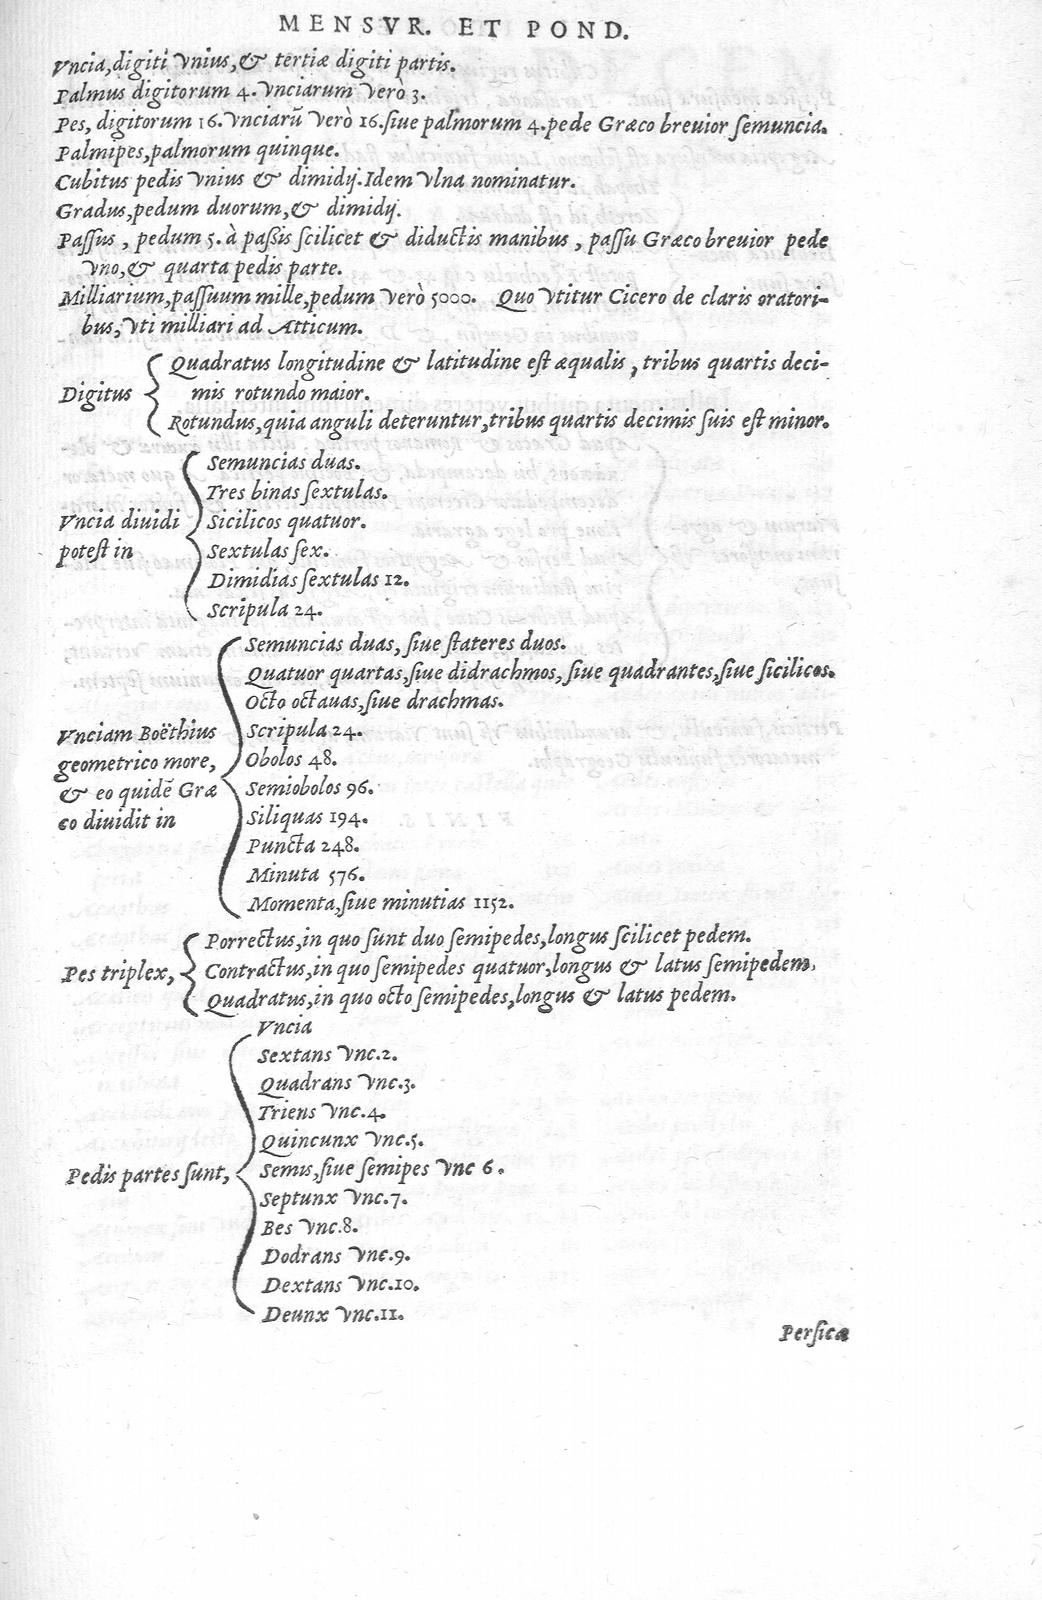 MENSVR. ET POND.
Vncia,digiti vnius,& tertiæ digiti partis.
Palmus digitorum 4. vnciarum verò 3.
Pes, digitorum 16. vnciarū verò 16. siue palmorum 4. pede Græco breuior semuncia.
Palmipes,palmorum quinque.
Cubitus pedis vnius & dimidij. Idem vlna nominatur.
Gradus,pedum duorum,& dimidij.
Passus, pedum 5. à paßis scilicet & diductis manibus, passu Græco breuior pede
vno,& quarta pedis parte.
Milliarium,passuum mille,pedum verò 5000. Quo vtitur Cicero de claris oratori-
bus, vti milliari ad Atticum.
Digitus
Quadratus longitudine & latitudine est æqualis, tribus quartis deci-
mis rotundo maior.
Rotundus,quia anguli deteruntur,tribus quartis decimis suis est minor.
Vncia diuidi
potest in
Semuncias duas.
Tres binas sextulas.
Sicilicos quatuor.
Sextulas sex.
Dimidias sextulas 12.
Scripula 24.
Vnciam Boëthius
geometrico more,
& eo quidē Græ
co diuidit in
Semuncias duas, siue stateres duos.
Quatuor quartas,siue didrachmos, siue quadrantes,siue sicilicos.
Octo octauas,siue drachmas.
Scripula 24.
Obolos 48.
Semiobolos 96.
Siliquas 194.
Puncta 248.
Minuta 576.
Momenta,siue minutias 1152.
Pes triplex,
Porrectus,in quo sunt duo semipedes,longus scilicet pedem.
Contractus,in quo semipedes quatuor,longus & latus semipedem.
Quadratus,in quo octo semipedes,longus & latus pedem.
Pedis partes sunt,
Vncia
Sextans vnc.2.
Quadrans vnc.3.
Triens vnc.4.
Quincunx vnc.5.
Semis,siue semipes vnc 6.
Septunx vnc.7.
Bes vnc.8.
Dodrans vnc.9.
Dextans vnc.10.
Deunx vnc.11.
Persica